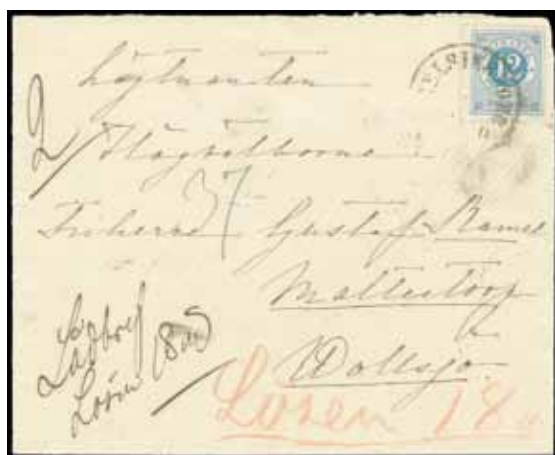 12
Löjtnanten
2/ Högvälborne
37
Friherre Gustaf Ramel
Mattistorp
Wollsjö
Lådbref
Lösen 18 öre
Lösen 18